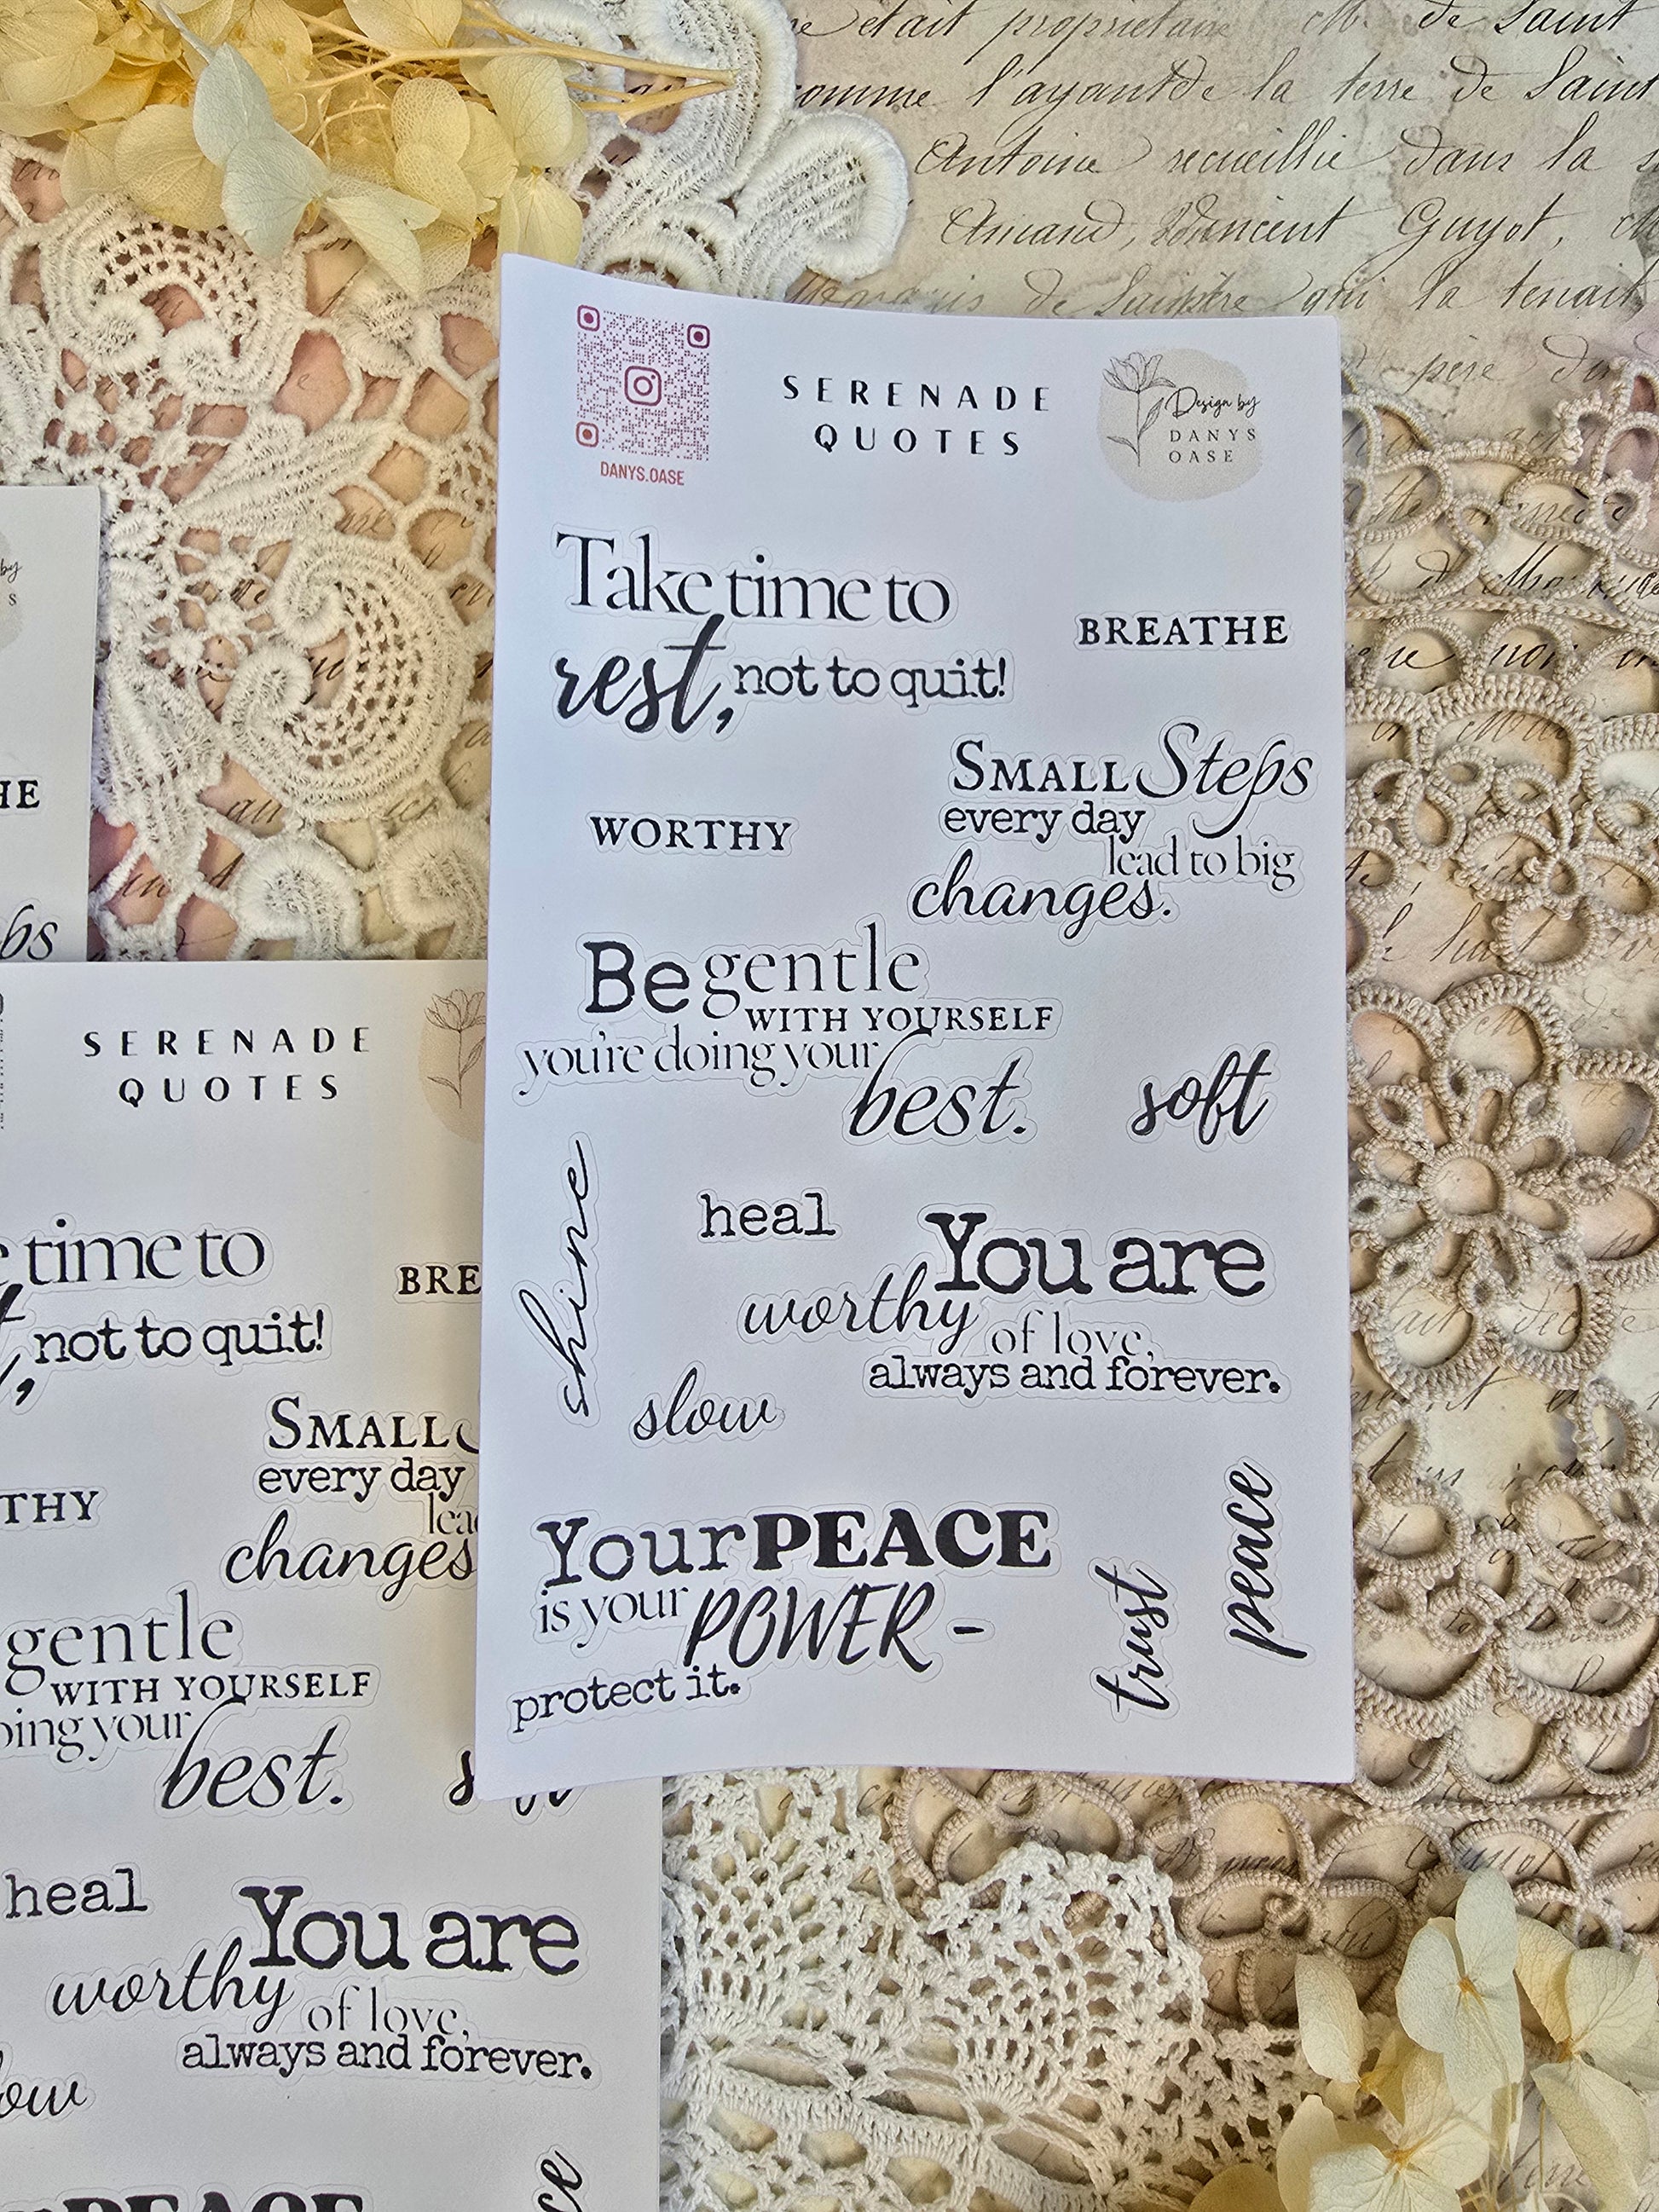 était propriétaire M. de Saint
comme l'ayant de la terre de Saint
Antoine recueillie dans la
Amand, Vincent Guyot,
de qui la tenait
père
DANYS.OASE
SERENADE
QUOTES
Design by
DANYS
OASE
Take time to
rest, not to quit!
BREATHE
SMALL Steps
every day
lead to big
changes.
WORTHY
Be gentle
WITH YOURSELF
you're doing your
best.
soft
shine
heal
You are
worthy of love,
always and forever.
slow
Your PEACE
is your POWER -
protect it.
trust
peace
by
S
HE
SERENADE
QUOTES
time to
not to quit!
BRE
SMALL
every day
changes
THY
gentle
WITH YOURSELF
oing your
best.
heal
You are
worthy of love,
always and forever.
ow
PEACE
ce